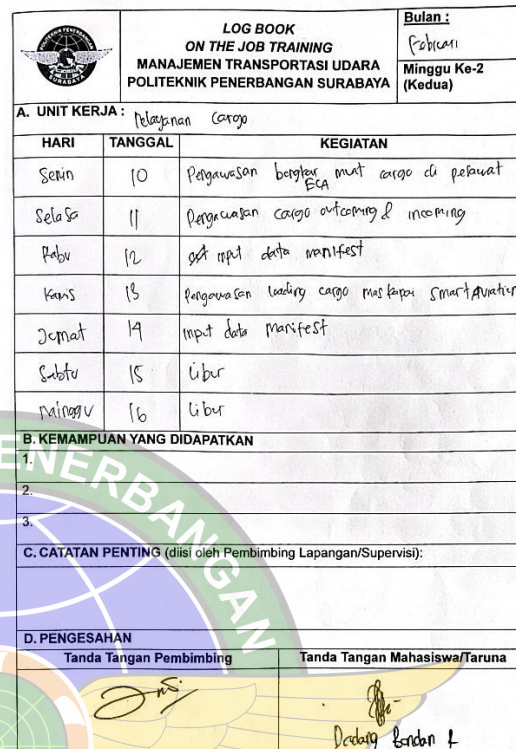 LOG BOOK
ON THE JOB TRAINING
MANAJEMEN TRANSPORTASI UDARA
POLITEKNIK PENERBANGAN SURABAYA
Bulan :
Februari
Minggu Ke-2
(Kedua)
A. UNIT KERJA : Pelayanan Cargo
HARI TANGGAL KEGIATAN
Senin 10 Pengawasan bongkar muat cargo di pesawat
ECA
Selasa 11 Pengawasan cargo outcoming & incoming
Rabu 12 input data manifest
Kamis 13 Pengawasan loading cargo maskapai Smart Aviation
Jumat 14 input data manifest
Sabtu 15 Libur
Minggu 16 Libur
B. KEMAMPUAN YANG DIDAPATKAN
1.
2.
3.
C. CATATAN PENTING (diisi oleh Pembimbing Lapangan/Supervisi):
D. PENGESAHAN
Tanda Tangan Pembimbing Tanda Tangan Mahasiswa/Taruna
Dadang Bondan
PENERBANGAN